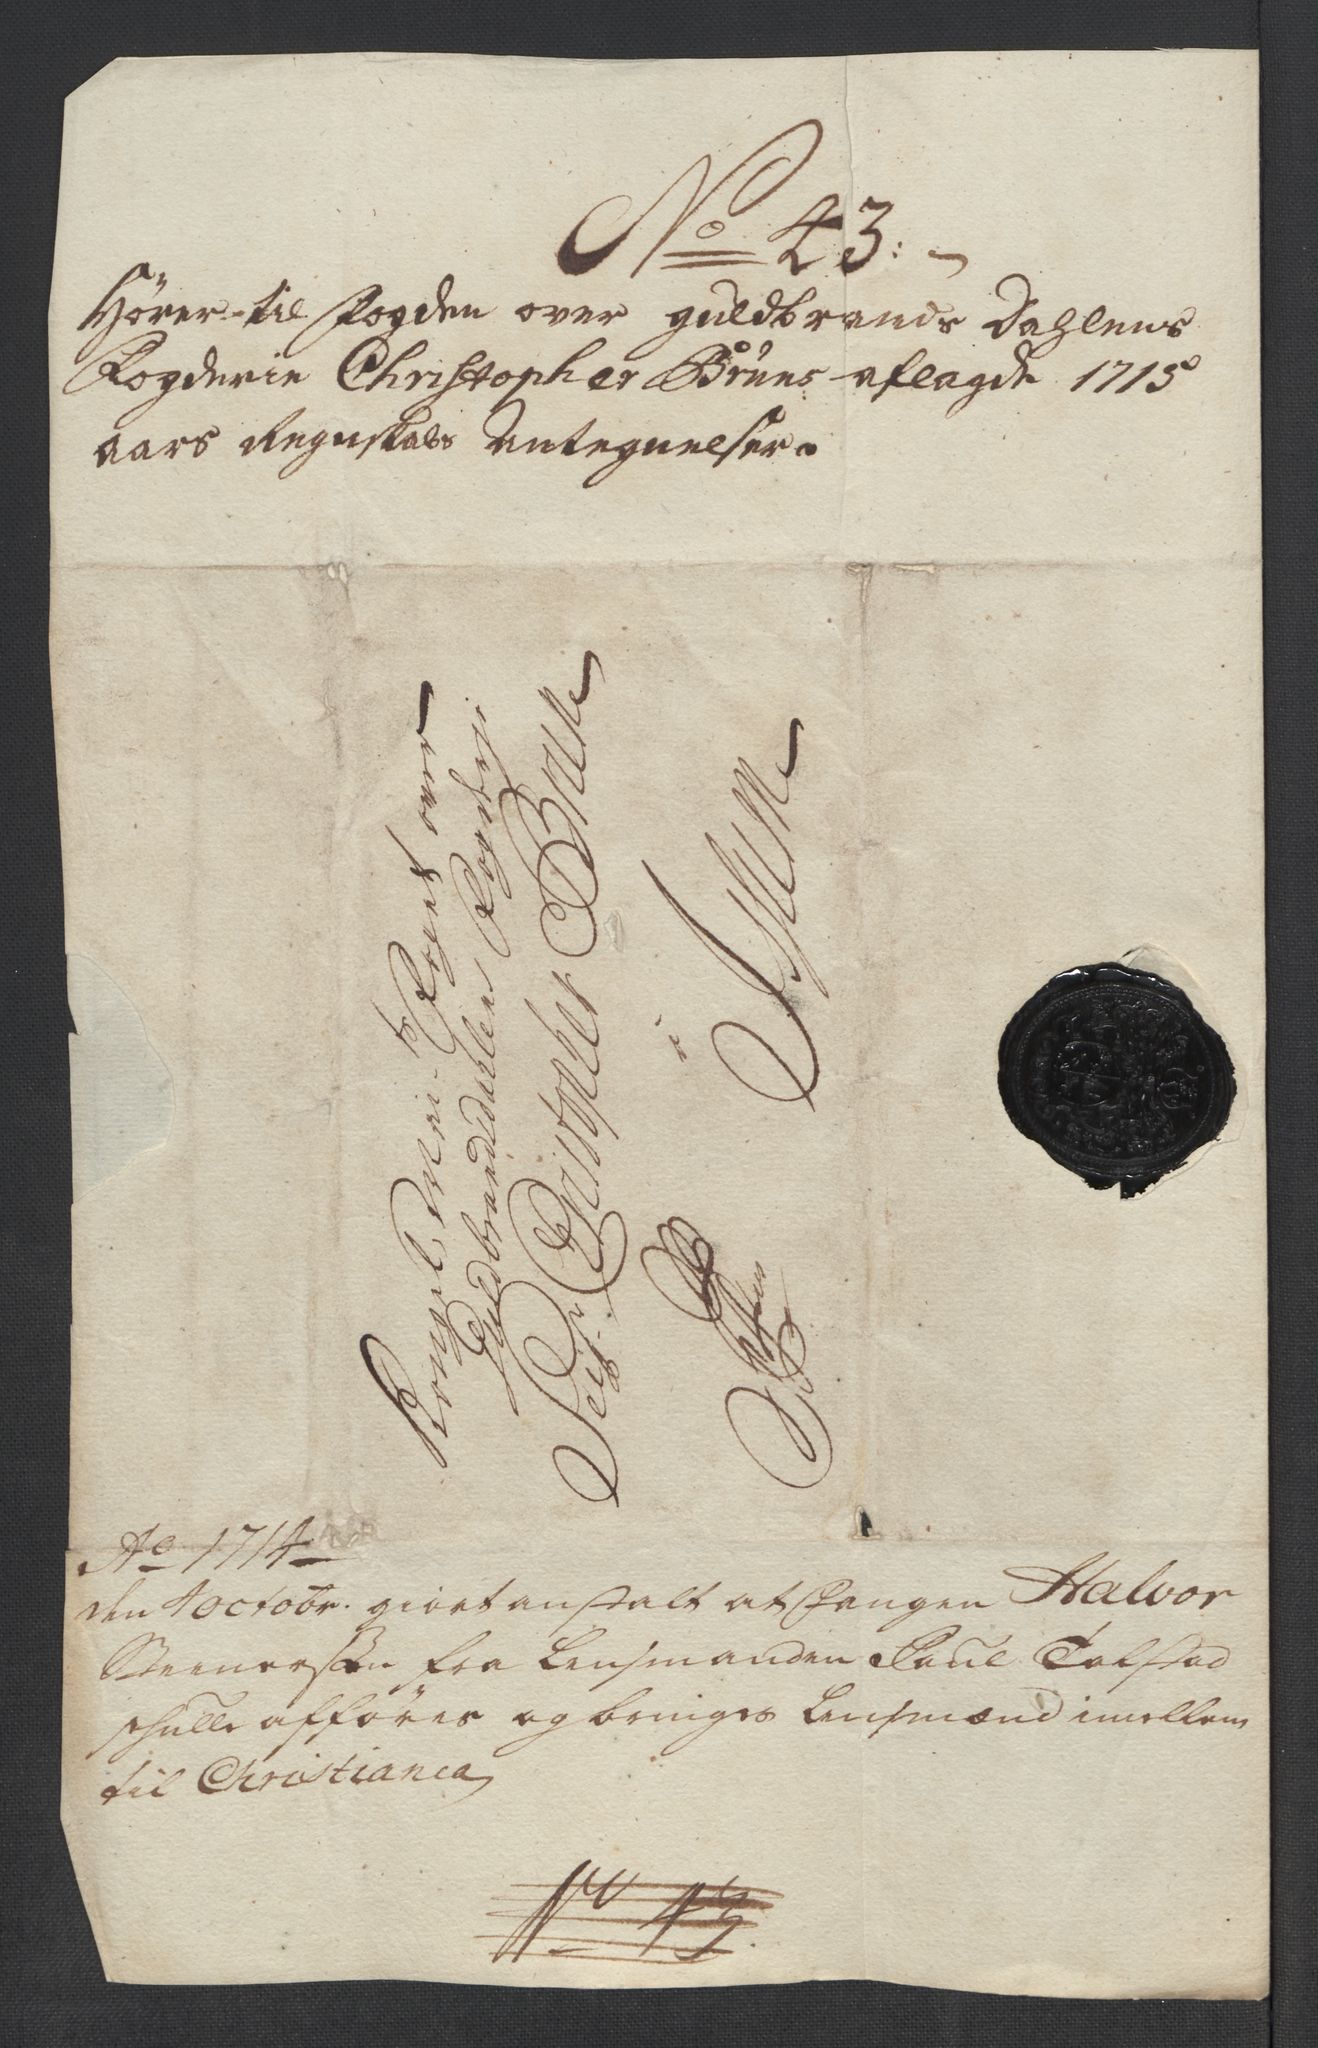 No 43:
Hörer til Fogden over Guldbrands Dahlens
Fogderie Christopher Brúns aflagde 1715
aars Regnskabs Antegnelser.
Kongel May: Foget over
Guldbrandsdahlens Fogderi
Christopher Brun
à
Isum
Ao 1714
den 1 Octobr. giort anstalt at fangen Halvor
Steenersøn fra Lensmanden Paul Tolstad
schulle afføres og bringes Lensmænd imellem
til Christiania
No 43.